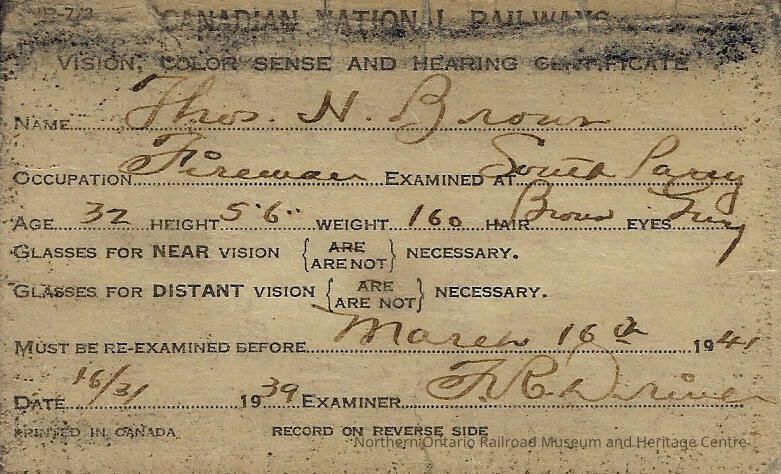 CANADIAN NATIONAL RAILWAYS
VISION, COLOR SENSE AND HEARING CERTIFICATE
NAME Thos. N. Brown
OCCUPATION Fireman EXAMINED AT South Parry
AGE 32 HEIGHT 5'6" WEIGHT 160 HAIR Brown EYES Grey
GLASSES FOR NEAR VISION { ARE
ARE NOT } NECESSARY.
GLASSES FOR DISTANT VISION { ARE
ARE NOT } NECESSARY.
MUST BE RE-EXAMINED BEFORE March 16th 1941
DATE 16/3/ 1939 EXAMINER F. R.
PRINTED IN CANADA RECORD ON REVERSE SIDE
Northern Ontario Railroad Museum and Heritage Centre